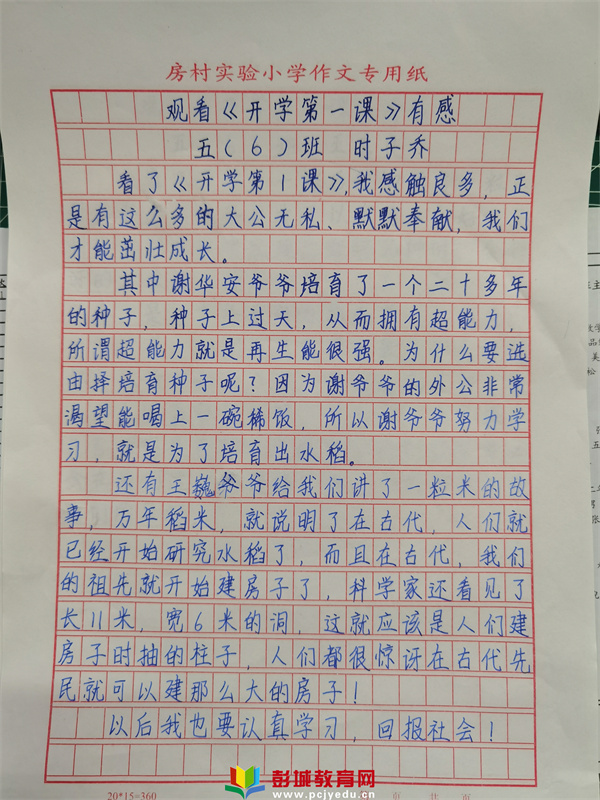 房村实验小学作文专用纸
观看《开学第一课》有感
五(6)班 时子乔
看了《开学第1课》,我感触良多,正
是有这么多的大公无私、默默奉献,我们
才能茁壮成长。
其中谢华安爷爷培育了一个二十多年
的种子,种子上过天,从而拥有超能力,
所谓超能力就是再生能很强。为什么要选
由择培育种子呢?因为谢爷爷的外公非常
渴望能喝上一碗稀饭,所以谢爷爷努力学
习,就是为了培育出水稻。
还有王巍爷爷给我们讲了一粒米的故
事,万年稻米,就说明了在古代,人们就
已经开始研究水稻了,而且在古代,我们
的祖先就开始建房子了,科学家还看见了
长11米,宽6米的洞,这就应该是人们建
房子时抽的柱子,人们都很惊讶在古代先
民就可以建那么大的房子!
以后我也要认真学习,回报社会!
20*15=360
彭城教育网
www.pcjyedu.cn